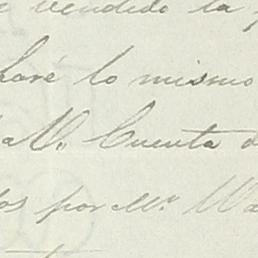 vendido la
haré lo mismo
a V. Cuenta d
dos por Mr. Wa